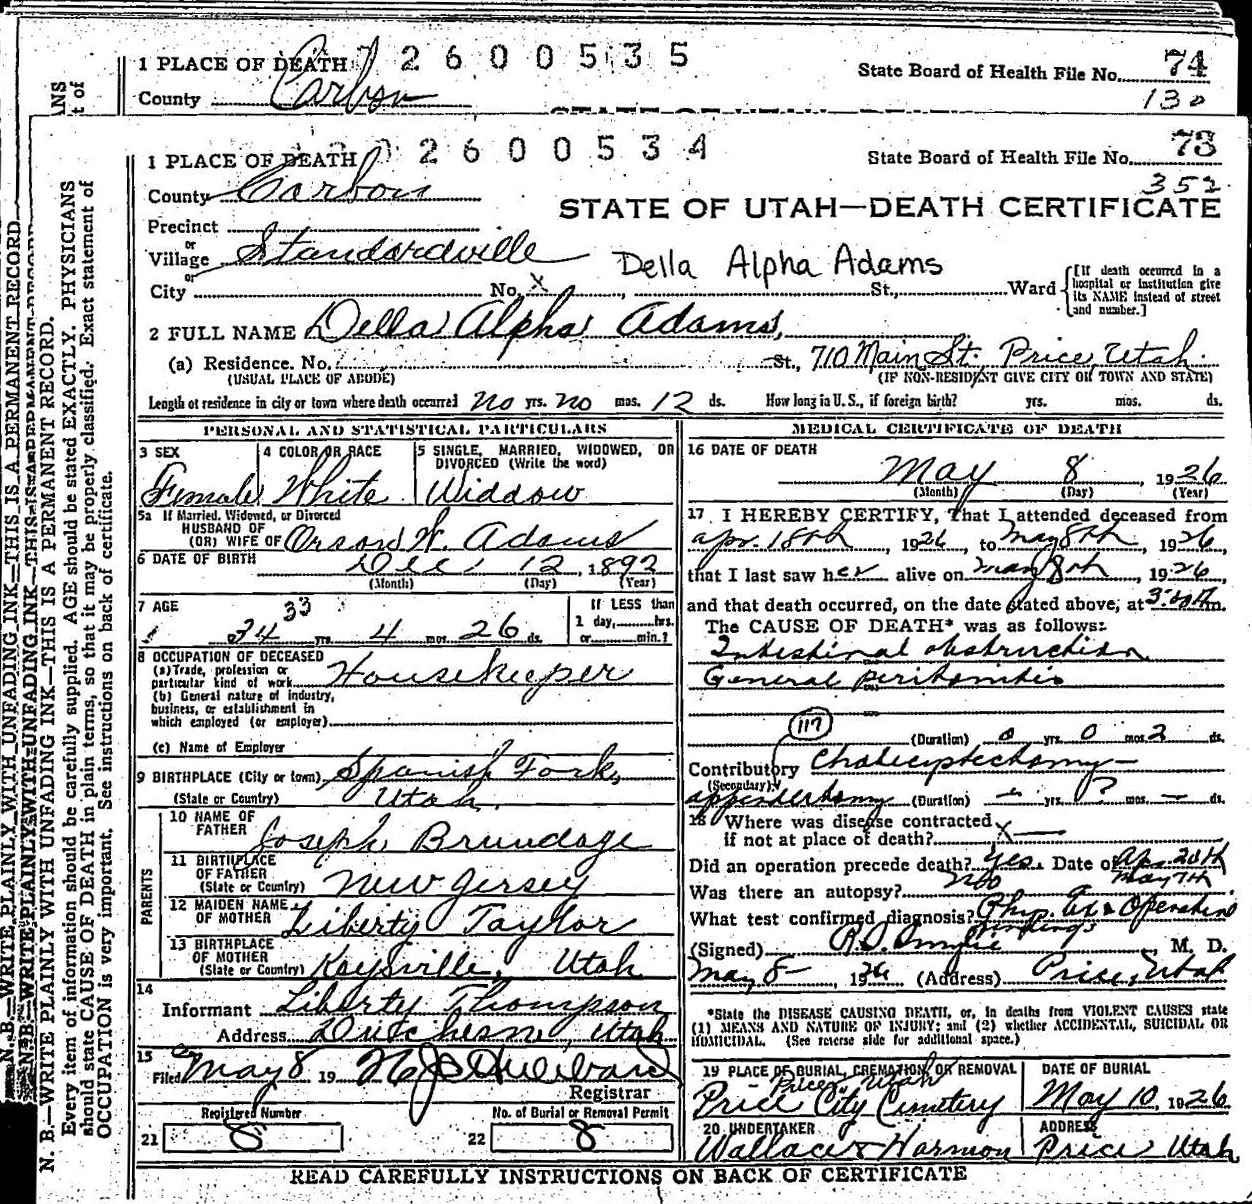 1 PLACE OF DEATH 2600535
State Board of Health File No. 74
County Carbon
130
1 PLACE OF DEATH 2600534
State Board of Health File No. 73
County Carbon
352
STATE OF UTAH—DEATH CERTIFICATE
Precinct
or
Village Standardville
Della Alpha Adams
or
City No. x St., Ward
[If death occurred in a hospital or institution give its NAME instead of street and number.]
2 FULL NAME Della Alpha Adams,
(a) Residence. No. St., 710 Main St. Price, Utah.
(USUAL PLACE OF ABODE) (IF NON-RESIDENT GIVE CITY OR TOWN AND STATE)
Length of residence in city or town where death occurred no yrs. no mos. 12 ds. How long in U. S., if foreign birth? yrs. mos. ds.
PERSONAL AND STATISTICAL PARTICULARS
3 SEX
Female
4 COLOR OR RACE
White
5 SINGLE, MARRIED, WIDOWED, OR DIVORCED (Write the word)
Widdow
5a If Married, Widowed, or Divorced
HUSBAND OF
(OR) WIFE OF Orson W. Adams
6 DATE OF BIRTH Dec 12, 1892
(Month) (Day) (Year)
7 AGE 33
34 yrs. 4 mos. 26 ds.
If LESS than
1 day, hrs.
or min.?
8 OCCUPATION OF DECEASED
(a) Trade, profession or
particular kind of work Housekeeper
(b) General nature of industry,
business, or establishment in
which employed (or employer)
(c) Name of Employer
9 BIRTHPLACE (City or town) Spanish Fork,
(State or Country) Utah.
PARENTS
10 NAME OF
FATHER Joseph Brundage
11 BIRTHPLACE
OF FATHER
(State or Country) New Jersey
12 MAIDEN NAME
OF MOTHER Liberty Taylor
13 BIRTHPLACE
OF MOTHER
(State or Country) Kaysville, Utah
14
Informant Liberty Thompson
Address Duchesne, Utah
15
Filed May 8 19
Registrar
Registered Number
No. of Burial or Removal Permit
21 8
22 8
MEDICAL CERTIFICATE OF DEATH
16 DATE OF DEATH
May 8, 1926
(Month) (Day) (Year)
17 I HEREBY CERTIFY, That I attended deceased from
Apr. 18th, 1926, to May 8th, 1926,
that I last saw her alive on May 8th, 1926,
and that death occurred, on the date stated above, at m.
The CAUSE OF DEATH* was as follows:
Intestinal obstruction
General peritonitis
117
(Duration) 0 yrs. 0 mos. 2 ds.
Contributory
(Secondary)
(Duration) yrs. ? mos. ds.
18 Where was disease contracted
if not at place of death? x
Did an operation precede death? Yes. Date of Ap. 20th
May 7th
Was there an autopsy? No
What test confirmed diagnosis? Phys. Ex & Operation
findings
(Signed) M. D.
May 8- 1926 (Address) Price, Utah
*State the DISEASE CAUSING DEATH, or, in deaths from VIOLENT CAUSES state
(1) MEANS AND NATURE OF INJURY; and (2) whether ACCIDENTAL, SUICIDAL OR
HOMICIDAL. (See reverse side for additional space.)
19 PLACE OF BURIAL, CREMATION OR REMOVAL
Price, Utah
Price City Cemetery
DATE OF BURIAL
May 10, 1926
20 UNDERTAKER
Wallace & Harmon
ADDRESS
Price Utah
READ CAREFULLY INSTRUCTIONS ON BACK OF CERTIFICATE
N. B.—WRITE PLAINLY WITH UNFADING INK—THIS IS A PERMANENT RECORD.
Every item of information should be carefully supplied. AGE should be stated EXACTLY. PHYSICIANS
should state CAUSE OF DEATH in plain terms, so that it may be properly classified. Exact statement of
OCCUPATION is very important. See instructions on back of certificate.